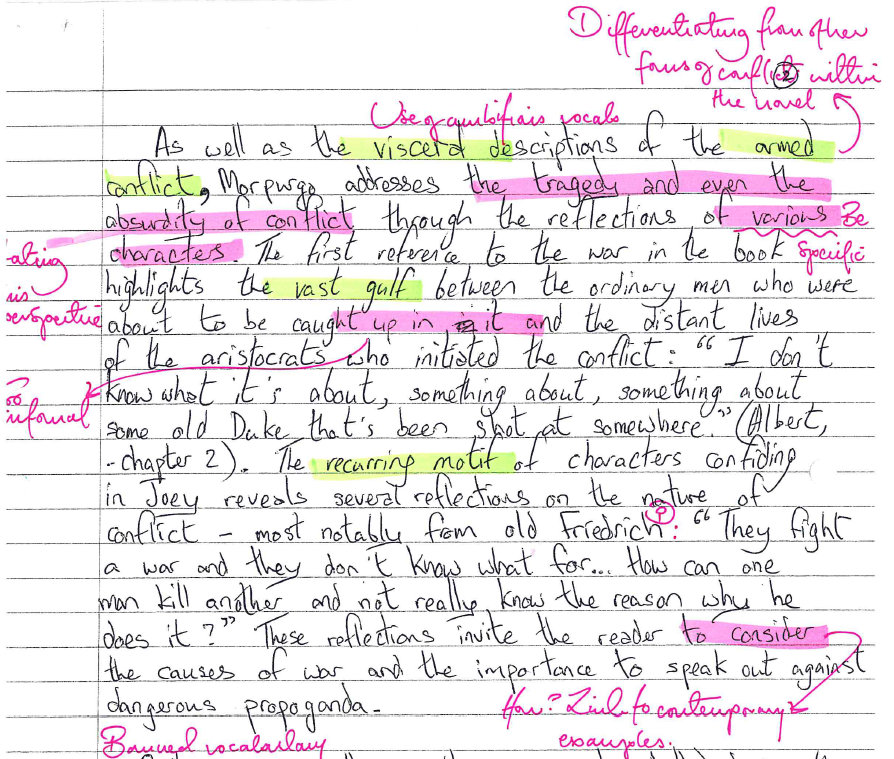 Differentiating from other
forms of conflict within
the novel
2
Use of ambitious vocab
As well as the visceral descriptions of the armed
conflict, Morpurgo addresses the tragedy and even the
absurdity of conflict through the reflections of various
Be
specific
characters. The first reference to the war in the book
highlights the vast gulf between the ordinary men who were
about to be caught up in it and the distant lives
ating
perspective
of the aristocrats who initiated the conflict: "I don't
know what it's about, something about, something about
informal
some old Duke that's been shot at somewhere." (Albert,
-chapter 2). The recurring motif of characters confiding
in Joey reveals several reflections on the nature of
conflict - most notably from old Friedrich: "They fight
?
a war and they don't know what for... How can one
man kill another and not really know the reason why he
does it?" These reflections invite the reader to consider
the causes of war and the importance to speak out against
dangerous propoganda.
How? Link to contemporary
examples.
Banned vocabulary